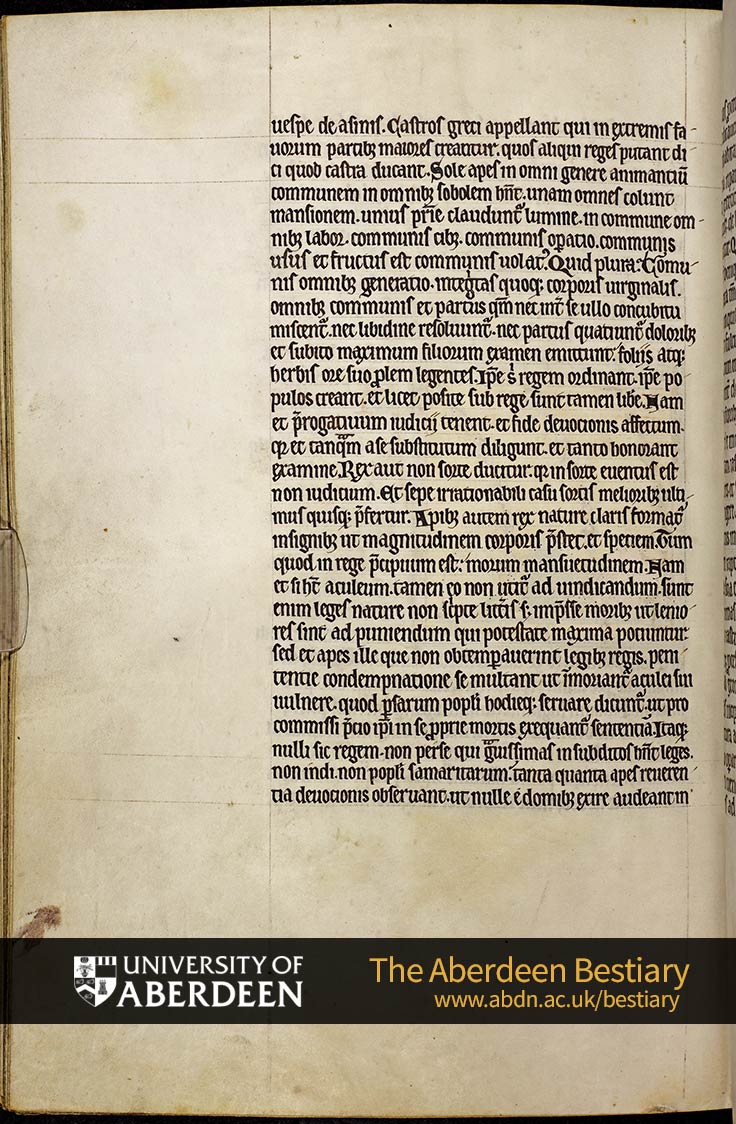 uespe de asinis. Castros greci appellant qui in extremis fa-
uorum partibꝫ maiores creantur. quos aliqui reges putant di-
ci quod castra ducant. Sole apes in omni genere animantiū
communem in omnibꝫ sobolem hn̄t. unam omnes colunt
mansionem. unius pr̄ie claudunt᷑ lumine. in commune om-
nibꝫ labor. communis cibꝫ. communis oꝑatio. communis
usus et fructus est communis uolat᷑. Quid plura? Cōmu-
nis omnibꝫ generatio. integ̾tas quoqꝫ corporis uirginalis.
omnibꝫ communis et partus qm̄ nec int̾ se ullo concubitu
miscent᷑. nec libidine resoluunt᷑. nec partus quatiunt᷑ doloribꝫ
et subito maximum filiorum examen emittunt. foliis atqꝫ
herbis ore suo ꝓlem legentes. Ip̄e s; regem ordinant. ip̄e po-
pulos creant. et licet posite sub rege sunt tamen lib̾e. Nam
et p̄rogatiuum iudicij tenent. et fide deuocionis affectum.
qꝛ et tanqͣm a se substitutum diligunt. et tanto honorant
examine. Rex aut non sorte ducitur. qꝛ in sorte euentus est
non iudicium. Et sepe irrationabili casu sortis melioribꝫ ulti-
mus quisqꝫ p̄fertur. Apibꝫ autem rex nature claris format᷑
insignibꝫ ut magnitudinem corporis p̄stet. et speciem. Tum
quod in rege p̄cipuum est. morum mansuetudinem. Nam
et si ht̄ aculeum. tamen eo non utit᷑ ad uindicandum. sunt
enim leges nature non scͥpte litt̾is s; imp̄sse moribꝫ ut lenio-
res sint ad puniendum qui potestate maxima potiuntur.
sed et apes ille que non obtemꝑauerint legibꝫ regis. peni-
tentie condempnatione se multant ut īmoriant᷑ aculei sui
uulnere. quod ꝑsarum popl̄i hodieqꝫ seruare dicunt᷑. ut pro
commissi p̄cio ip̄i in se ꝓprie mortis exequant᷑ sentenciā. Itaqꝫ
nulli sic regem. non perse qui gͣuissimas in subditos hn̄t leges.
non indi. non popl̄i samaritarum. tanta quanta apes reueren-
tia deuocionis obseruant. ut nulle ē domibꝫ exire audeant in
UNIVERSITY OF
ABERDEEN
The Aberdeen Bestiary
www.abdn.ac.uk/bestiary